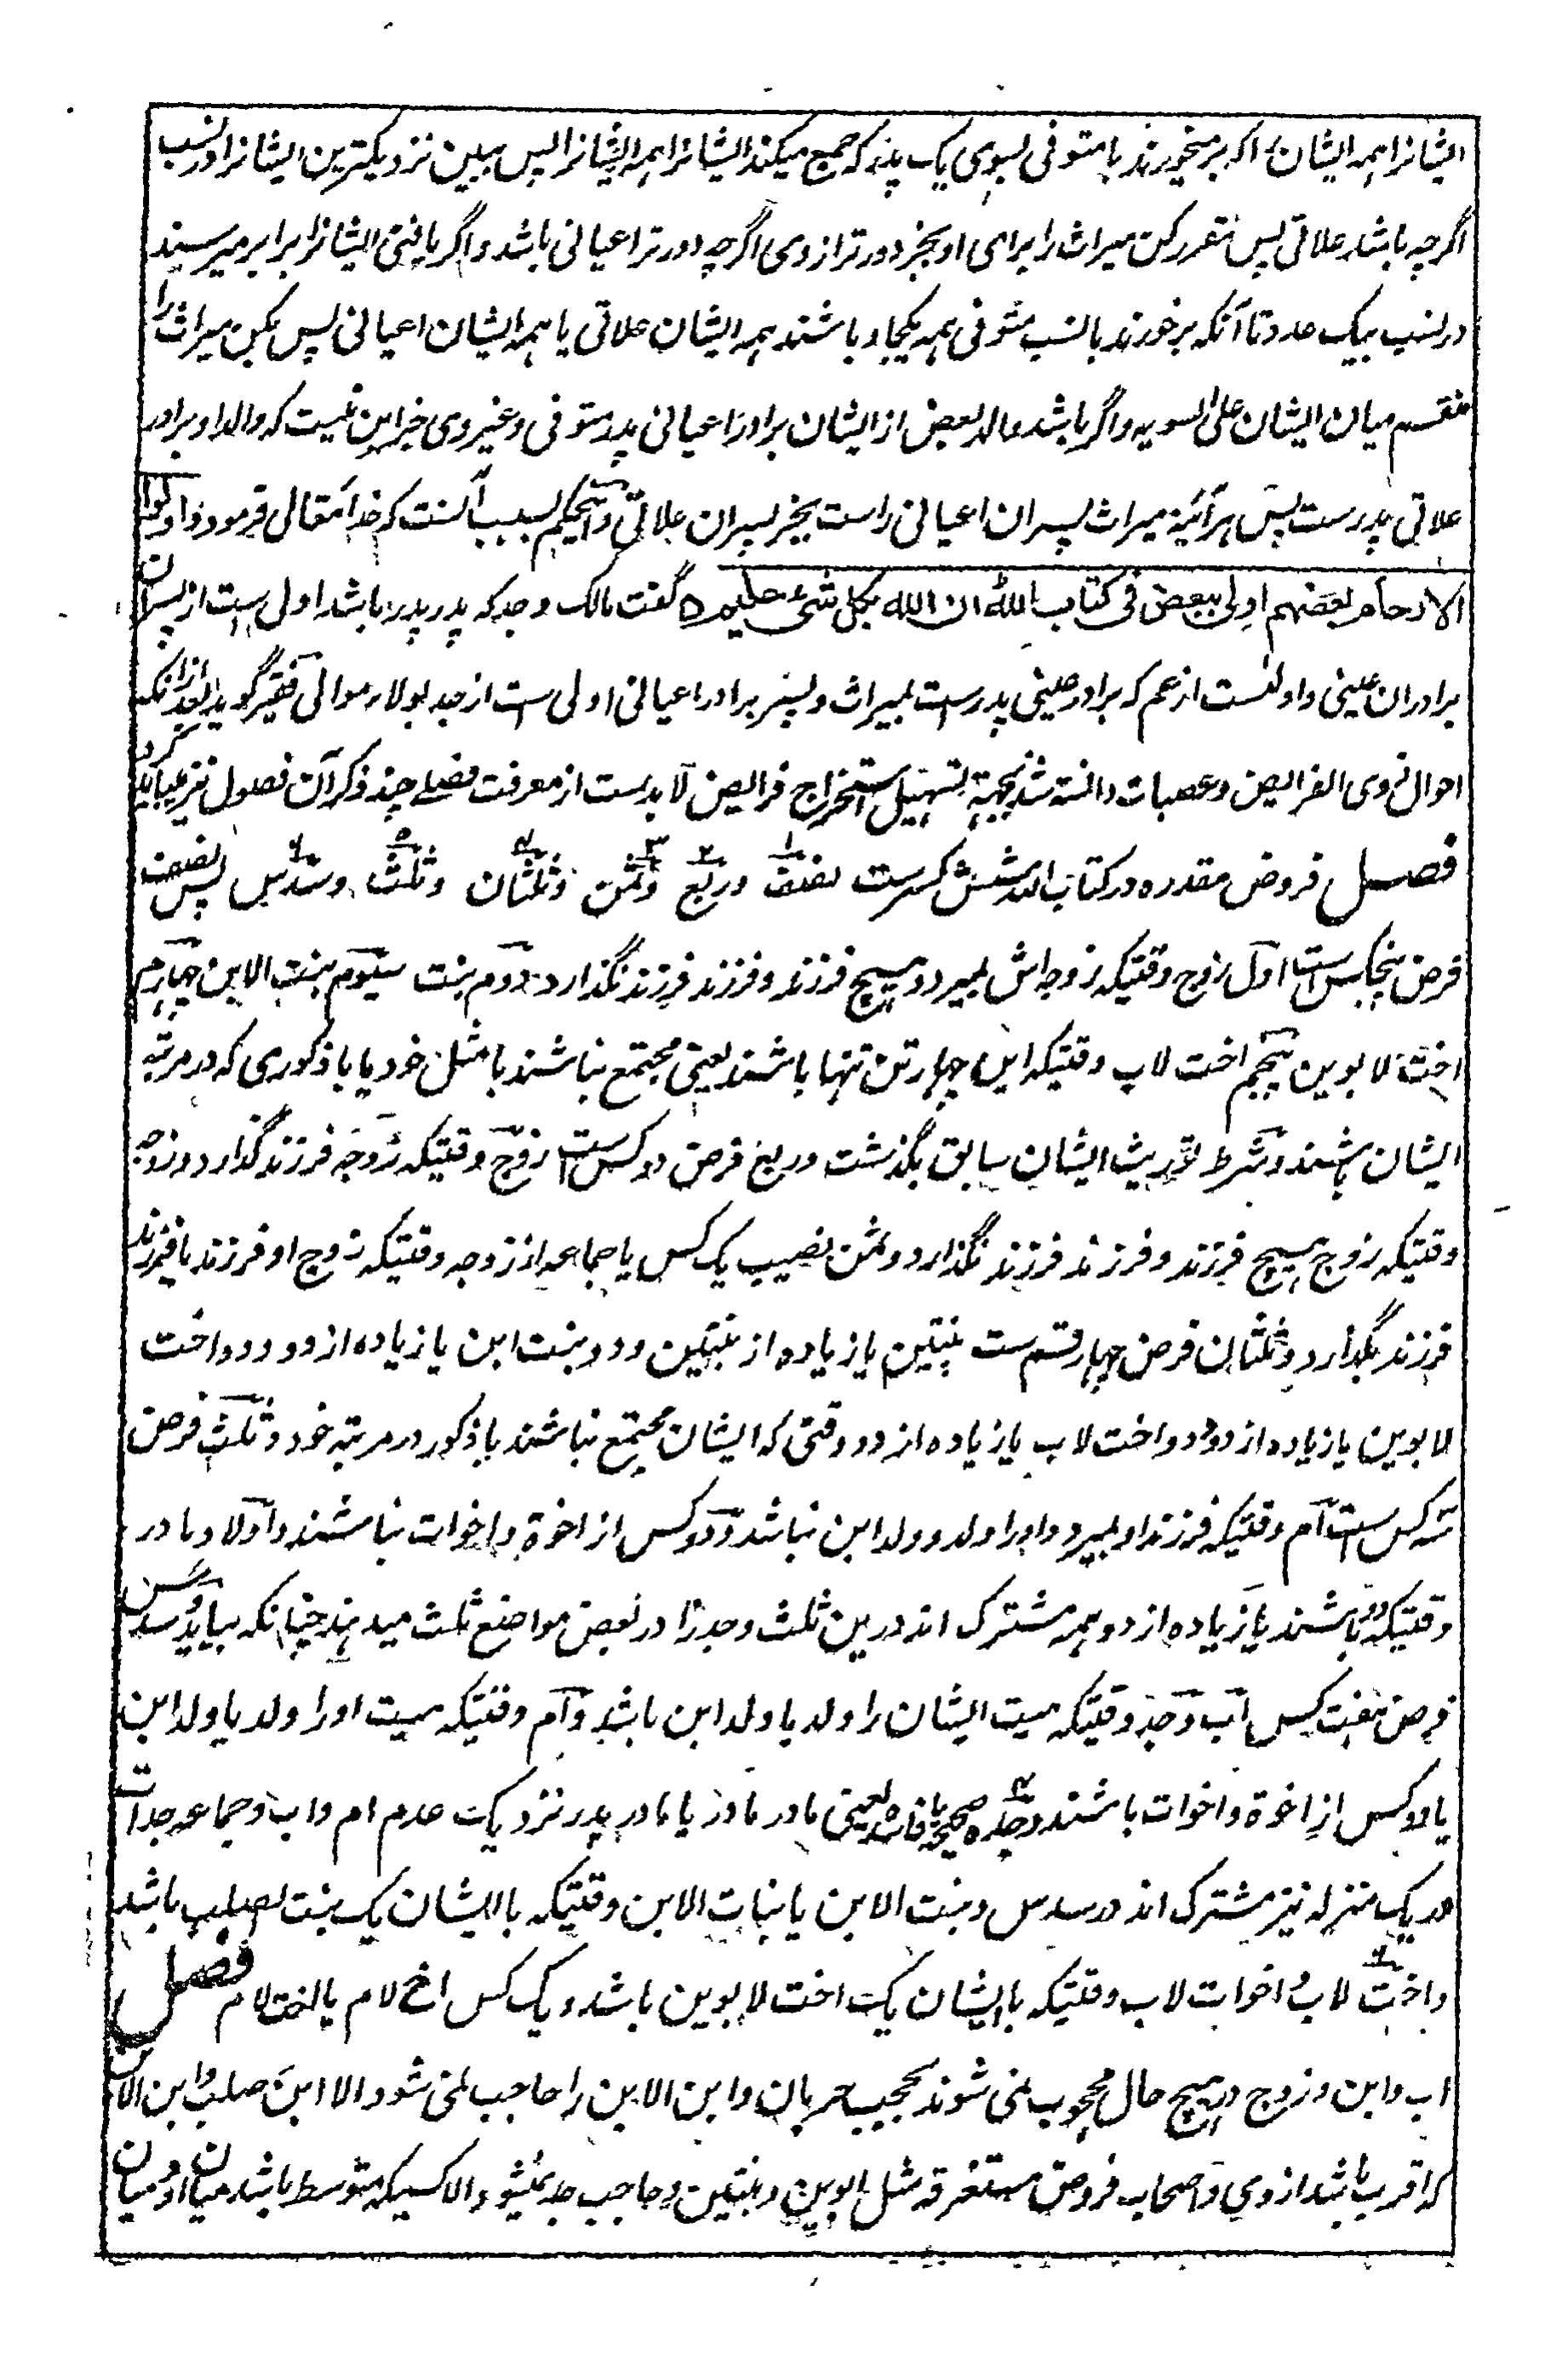 ایشانرا همه ایشان اگر برمیخورند با متوفی بسوی یک پدر که جمع میکند ایشانرا همه ایشانرا پس ببین نزدیکترین ایشانرا در نسب
اگرچه باشد علاتی پس مقرر کن میراث را برای او بجز دورتر از وی اگرچه دورتر اعیانی باشد و اگر یافتی ایشانرا برابر میرسند
در نسب بیک عدد تا آنکه برخورند با نسب متوفی همه یکجا و باشند همه ایشان علاتی یا همه ایشان اعیانی پس بکن میراث را
منقسم میان ایشان علی السویه و اگر باشد والد بعض از ایشان برادر اعیانی پدر متوفی و غیر وی جز این نیست که والد او برادر
علاتی پدرست پس هر آئینه میراث پسران اعیانی راست بجز پسران علاتی و این حکم بسبب آنست که خدا تعالی فرمود واولوا
الارحام بعضهم اولی ببعض فی کتاب الله ان الله بکل شیء علیم ه گفت مالک و جد که پدر پدر باشد اولی ست از پسران
برادران عینی و اولیست از عم که برادر عینی پدرست بمیراث و پسر برادر اعیانی اولی ست از جد بولاء موالی فقیر گوید بعد از آنکه
احوال ذوی الفرایض و عصبات دانسته شد بجهة تسهیل استخراج فرایض لابدست از معرفت فصلے چند ذکر آن فصول نیز میباید کرد
فصل فروض مقدره در کتاب الله شش کسرست نصف ۱ و ربع ۲ و ثمن ۳ و ثلثان ۴ و ثلث ۵ و سدس ۶ پس نصف
فرض پنجکس ست اول زوج وقتیکه زوجه اش بمیرد و هیچ فرزند و فرزند فرزند نگذارد دوم بنت سیوم بنت الابن چهارم
اخت لابوین پنجم اخت لاب وقتیکه این چهار تن تنها باشند یعنی مجتمع نباشند با مثل خود یا با ذکوری که در مرتبه
ایشان باشند و شرط توریث ایشان سابق بگذشت و ربع فرض دو کس ست زوج وقتیکه زوجه فرزند گذارد و زوجه
وقتیکه زوج هیچ فرزند و فرزند فرزند نگذارد و ثمن نصیب یک کس یا جماعه از زوجه وقتیکه زوج او فرزند یا فرزند
فرزند بگذارد و ثلثان فرض چهار قسم ست بنتین یا زیاده از بنتین و دو بنت ابن یا زیاده از دو و دو اخت
لابوین یا زیاده از دو و دو اخت لاب یا زیاده از دو وقتی که ایشان مجتمع نباشند با ذکور در مرتبه خود و ثلث فرض
سه کس ست ام وقتیکه فرزند او بمیرد و او را ولد و ولد ابن نباشد و دو کس از اخوة و اخوات نباشند و اولاد مادر
وقتیکه دو باشند یا زیاده از دو همه مشترک اند درین ثلث و جد را در بعض مواضع ثلث میدهند چنانکه بیاید و سدس
فرض هفت کس اب و جد وقتیکه میت ایشان را ولد یا ولد ابن باشد و ام وقتیکه میت او را ولد یا ولد ابن
یا دو کس از اخوة و اخوات باشند و جده صحیحه یعنی مادر مادر یا مادر پدر نزدیک عدم ام و اب و جماعه جدات
در یک منزله نیز مشترک اند در سدس و بنت الابن یا بنات الابن وقتیکه با ایشان یک بنت لصلب باشد
و اخت لاب و اخوات لاب وقتیکه با ایشان یک اخت لابوین باشد و یک کس اخ لام یا اخت لام فصل
اب و ابن و زوج در هیچ حال محجوب نمی شوند بحجب حرمان و ابن الابن را حاجب نمی شود الا ابن صلب و ابن الابن
که اقرب باشد از وی و اصحاب فروض مستغرقه مثل ابوین و بنتین و حاجب جد نمیشود الا کسیکه متوسط باشد میان او و میان